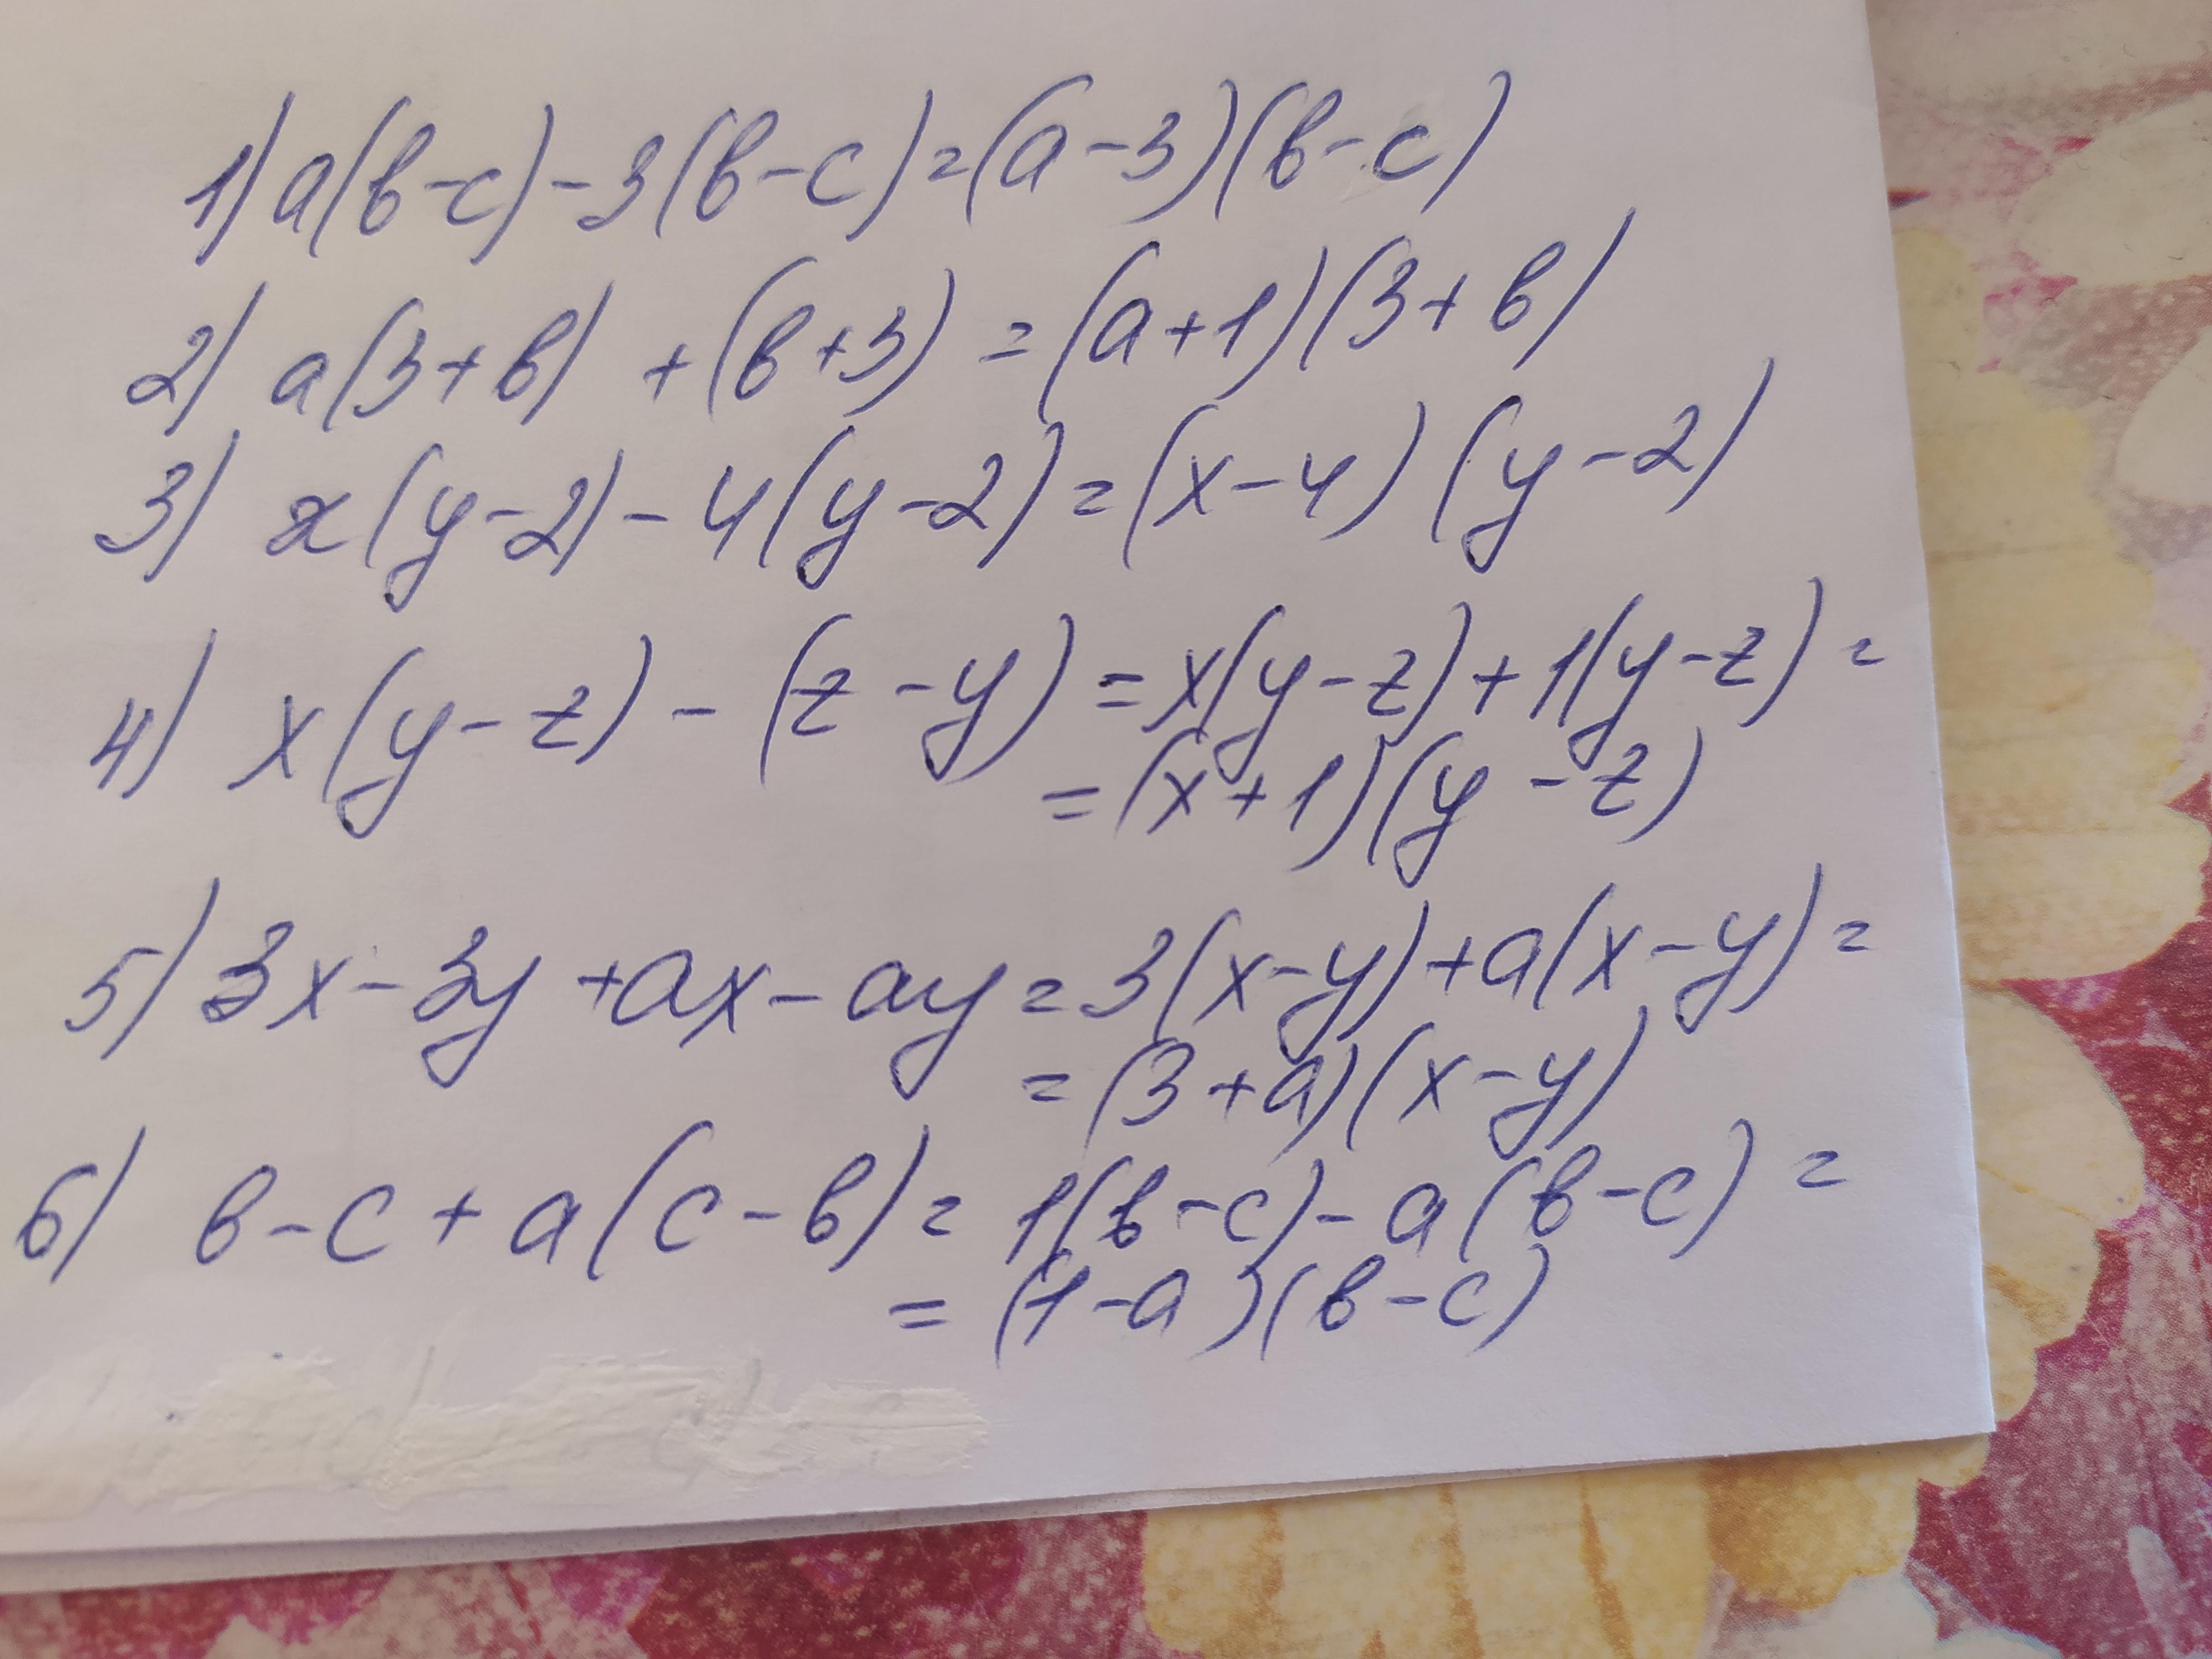 1) a(b-c)-3(b-c)=(a-3)(b-c)
2) a(3+b) +(b+3) =(a+1)(3+b)
3) x(y-2)-4(y-2)=(x-4)(y-2)
4) x(y-z)-(z-y)=x(y-z)+1(y-z)=
=(x+1)(y-z)
5) 3x-3y+ax-ay=3(x-y)+a(x-y)=
=(3+a)(x-y)
6) b-c+a(c-b)=1(b-c)-a(b-c)=
=(1-a)(b-c)